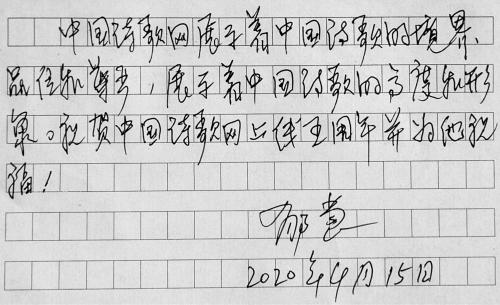 中国诗歌网展示着中国诗歌的境界、
品位和尊严，展示着中国诗歌的高度和形
象。祝贺中国诗歌网上线五周年并为她祝
福！
郁葱
2020年4月15日